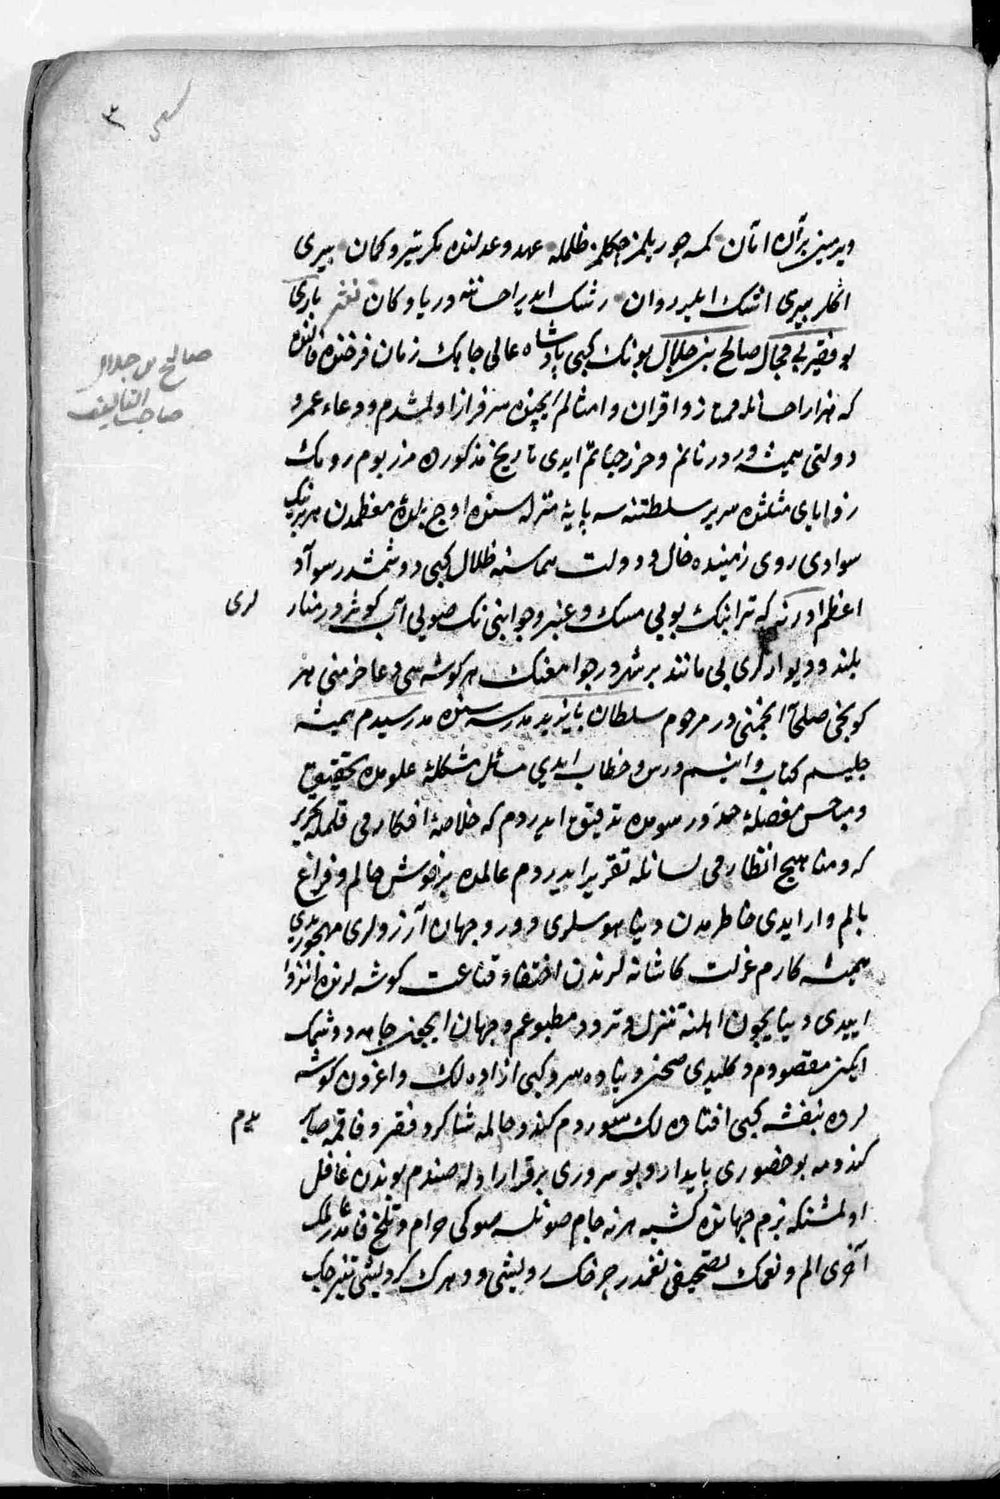 ٣
ویرمیز برآن اتان کمسه چور یلمز چکلمز ظلمله عهد و عدلنده مکر تیر و کمان بیری
اکلر بیری اشک ایلر روان رشک ایدر احساننه دریا و کان نثر باری
بو فقیر بی مجال صالح بن جلال بونک کبی پادشاه عالی جابک زمان فرخنده فالنده
که هزار احسانله ممتاز و اقران و امثالم ایچنده سرفراز اولمشدم و دعاء عمر و
دولتی همیشه ورد زبانم و حرز جانم ایدی تاریخ مذکورده مرز بوم رومک
زوایای مثلثنده سریر سلطنته سه پایه منزله سنده اوج بلدهٔ معظمدن هر برینک
سوادی روی زمینده خال و دولت هماسنه ظلال کبی دوشمشدر سواد
اعظم ادرنه که ترابنک بویی مسک و عنبر و جوابنی نک صویی آب کوثردر منار
لری
بلند و دیوارلری بی مانند بر شهردر جوامعنک هر کوشه سی دعا خرمنی هر
کوبخی صلحآ انجمنی در مرحوم سلطان بایزید مدرسه سنده مدرسیدم همیشه
جلیسم کتاب و انیسم درس و خطاب ایدی مسائل مشکلهٔ علومده تحقیق
و مباحث مفصلهٔ حدود رسومده تدقیق ایدردم که خلاصهٔ افکارمی قلمله تحریر
که و مناهج انظارمی لسانله تقریر ایدردم عالمده بر خوش حالم و فراغ
بالم وار ایدی خاطرمدن دنیا هوسلری دور و جهان آرزولری مهجور ایدی
همیشه کارم عزلت کاشانه لرندن اختفا و قناعت کوشه لرنده انزوا
ایدی دنیایچون اهلنه تنزل و تردد مطبوعم و جهان ایچنجاه دوشمک
ایکن مقصودم دکلیدی صحن دنیاده سرو کبی ازاده لک و اغزون کوشه
لرده بنفشه کبی افتاده لک سوردم کندو حالمه شاکر و فقر و فاقمه صابر
یدم
کندومه بو حضوری پایدار و بو سروری برقرار اوله صندم بوندن غافل
اولمشم که بزم جهانده کشیه هر نه جام صونلسه صوکی حرام و تلخ فامدر
آخری الم و نعمک تصحیفی نغمدر چرخک روشی و دهرک کردشی تغیر
صالح بن جلال
صاحب التالیف